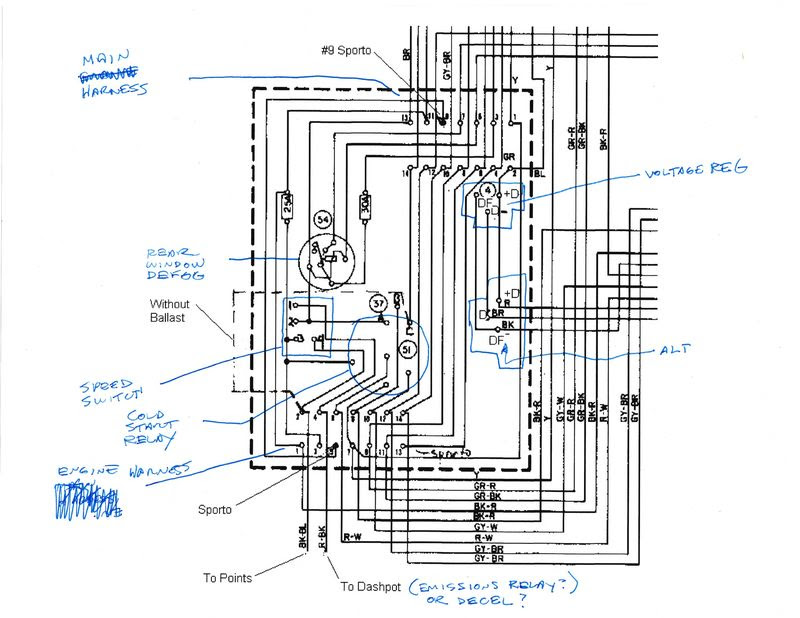 MAIN
HARNESS
#9 Sporto
BR
GY-BR
Y
Y
GR-R
GR-BK
BK-R
13 11 9 7 5 3 1
GR
BL
14 12 10 8 6 4 2
VOLTAGE REG
4
+D
DF
D-
25A
30A
54
REAR
WINDOW
DEFOG
Without
Ballast
1
2
3
4
37
51
+D
R
D-
BR
BK
DF
ALT
SPEED
SWITCH
COLD
START
RELAY
2 4 6 8 10 12 14
ENGINE HARNESS
1 3 5 7 9 11 13
SPORTO
Sporto
BK-R
Y
GY-W
GR-R
GR-BK
BK-R
R-W
GY-BR
GY-BR
Y
GR-R
GR-BK
BK-R
BK-R
GY-W
R-W
R-W
GY-BR
GY-BR
BK-BL
R-BK
To Points
To Dashpot (EMISSIONS RELAY?)
OR DECEL?